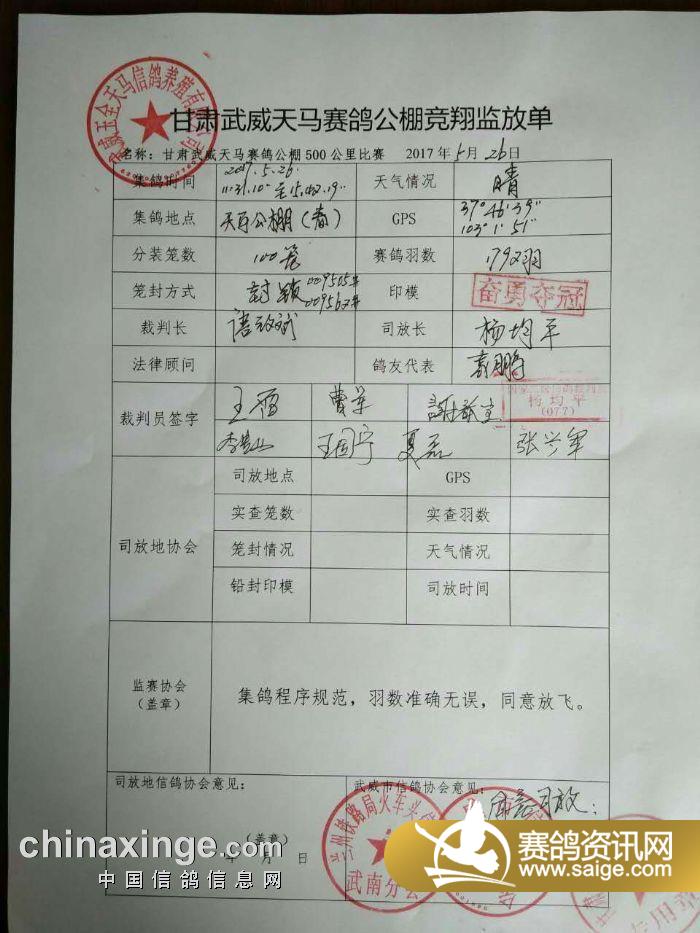 甘肃武威天马赛鸽公棚竞翔监放单
名称：甘肃武威天马赛鸽公棚500公里比赛 2017年5月26日
集鸽时间 2017.5.26. 11:31.10"至15.02.19" 天气情况 晴
集鸽地点 天马公棚（春） GPS 37°46'39" 103°1'51"
分装笼数 100笼 赛鸽羽数 羽
笼封方式 封锁 印模 奋勇夺冠
裁判长 司放长 杨均平
法律顾问 鸽友代表
裁判员签字 王 曹军 杨均平 (077)
王国宁 夏磊 张兴军
司放地协会 司放地点 GPS
实查笼数 实查羽数
笼封情况 天气情况
铅封印模 司放时间
监赛协会（盖章） 集鸽程序规范，羽数准确无误，同意放飞。
司放地信鸽协会意见： 武威市信鸽协会意见：
同意司放
（盖章）
年 月 日
武南分会
专用章
chinaxinge.com
中国信鸽信息网
赛鸽资讯网
www.saige.com